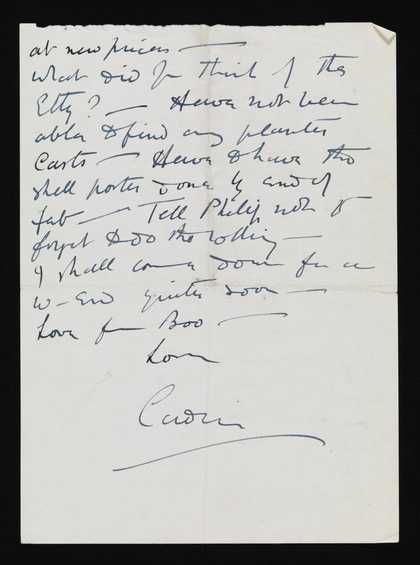 at new prices —
What did you think of the
Etty? — Have not been
able to find any plaster
Casts — Have to have the
shell porter done by end of
Feb — Tell Philip not to
forget to do the rolling —
I shall come down for a
w-end quite soon —
Love from Boo —
Love
Cedric